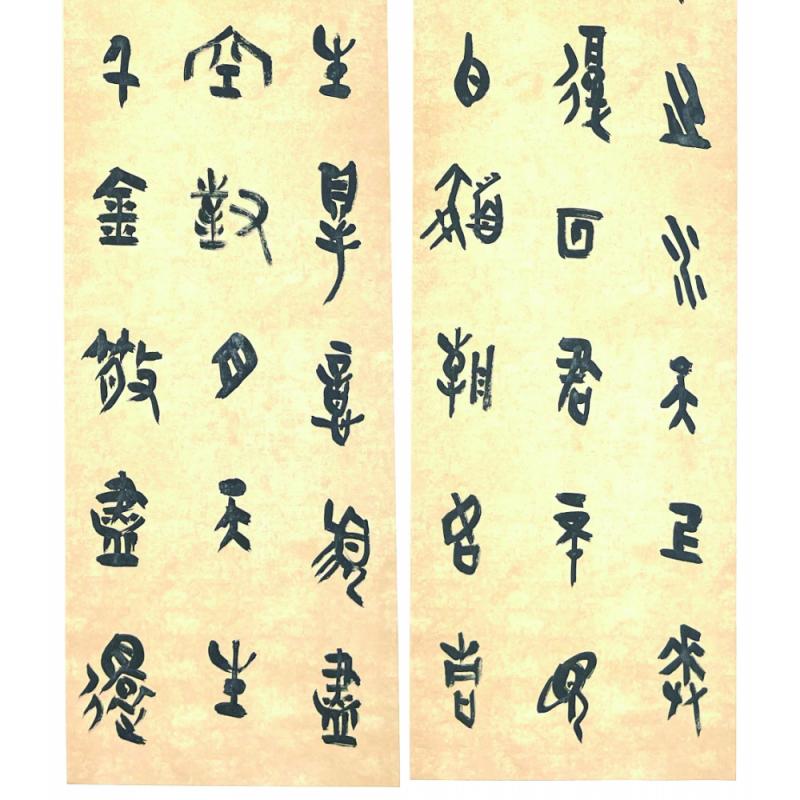 之水天上來
復回君不見
白髮朝如青
生得意須盡
空對月天生
千金散盡還